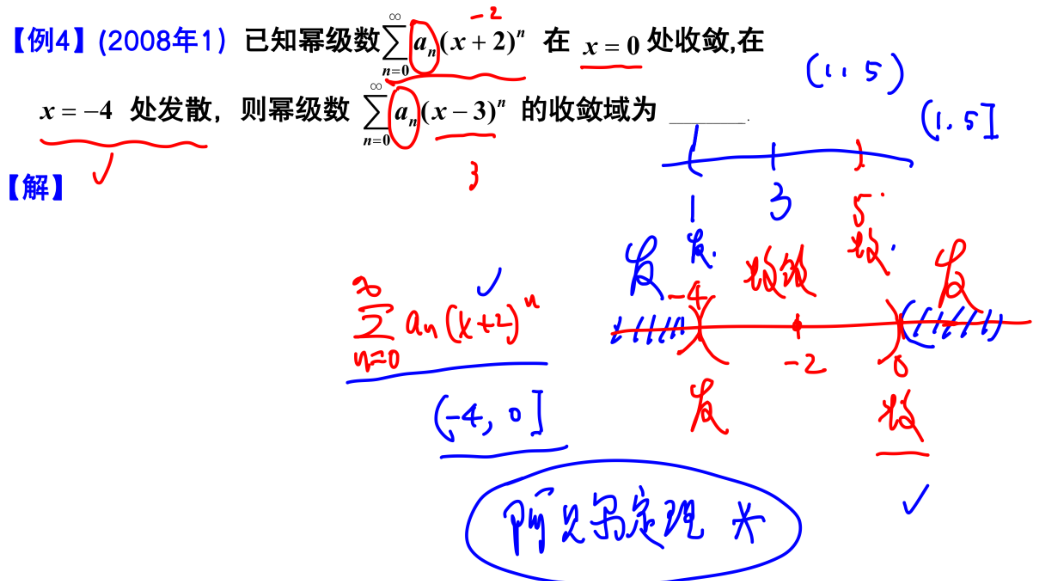 【例4】(2008年1) 已知幂级数∑_{n=0}^{∞} a_n(x+2)^n 在 x=0 处收敛,在
x=-4 处发散, 则幂级数 ∑_{n=0}^{∞} a_n(x-3)^n 的收敛域为 ______.
-2
3
【解】
(1, 5)
(1, 5]
1 3 5
发. 敛.
发 收敛 发
-4 -2 0
发 敛
∑_{n=0}^{∞} a_n(x+2)^n
(-4, 0]
阿贝尔定理